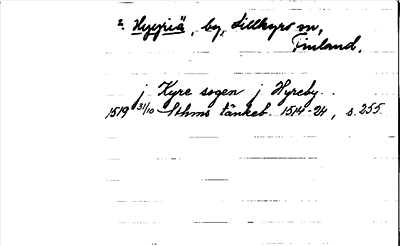 2. Hyyriä, by, Lillkyro sn,
Finland.
j Kyre sogen j Hyreby.
1519 31/10 Sthms tänkeb. 1514-24, s. 255.